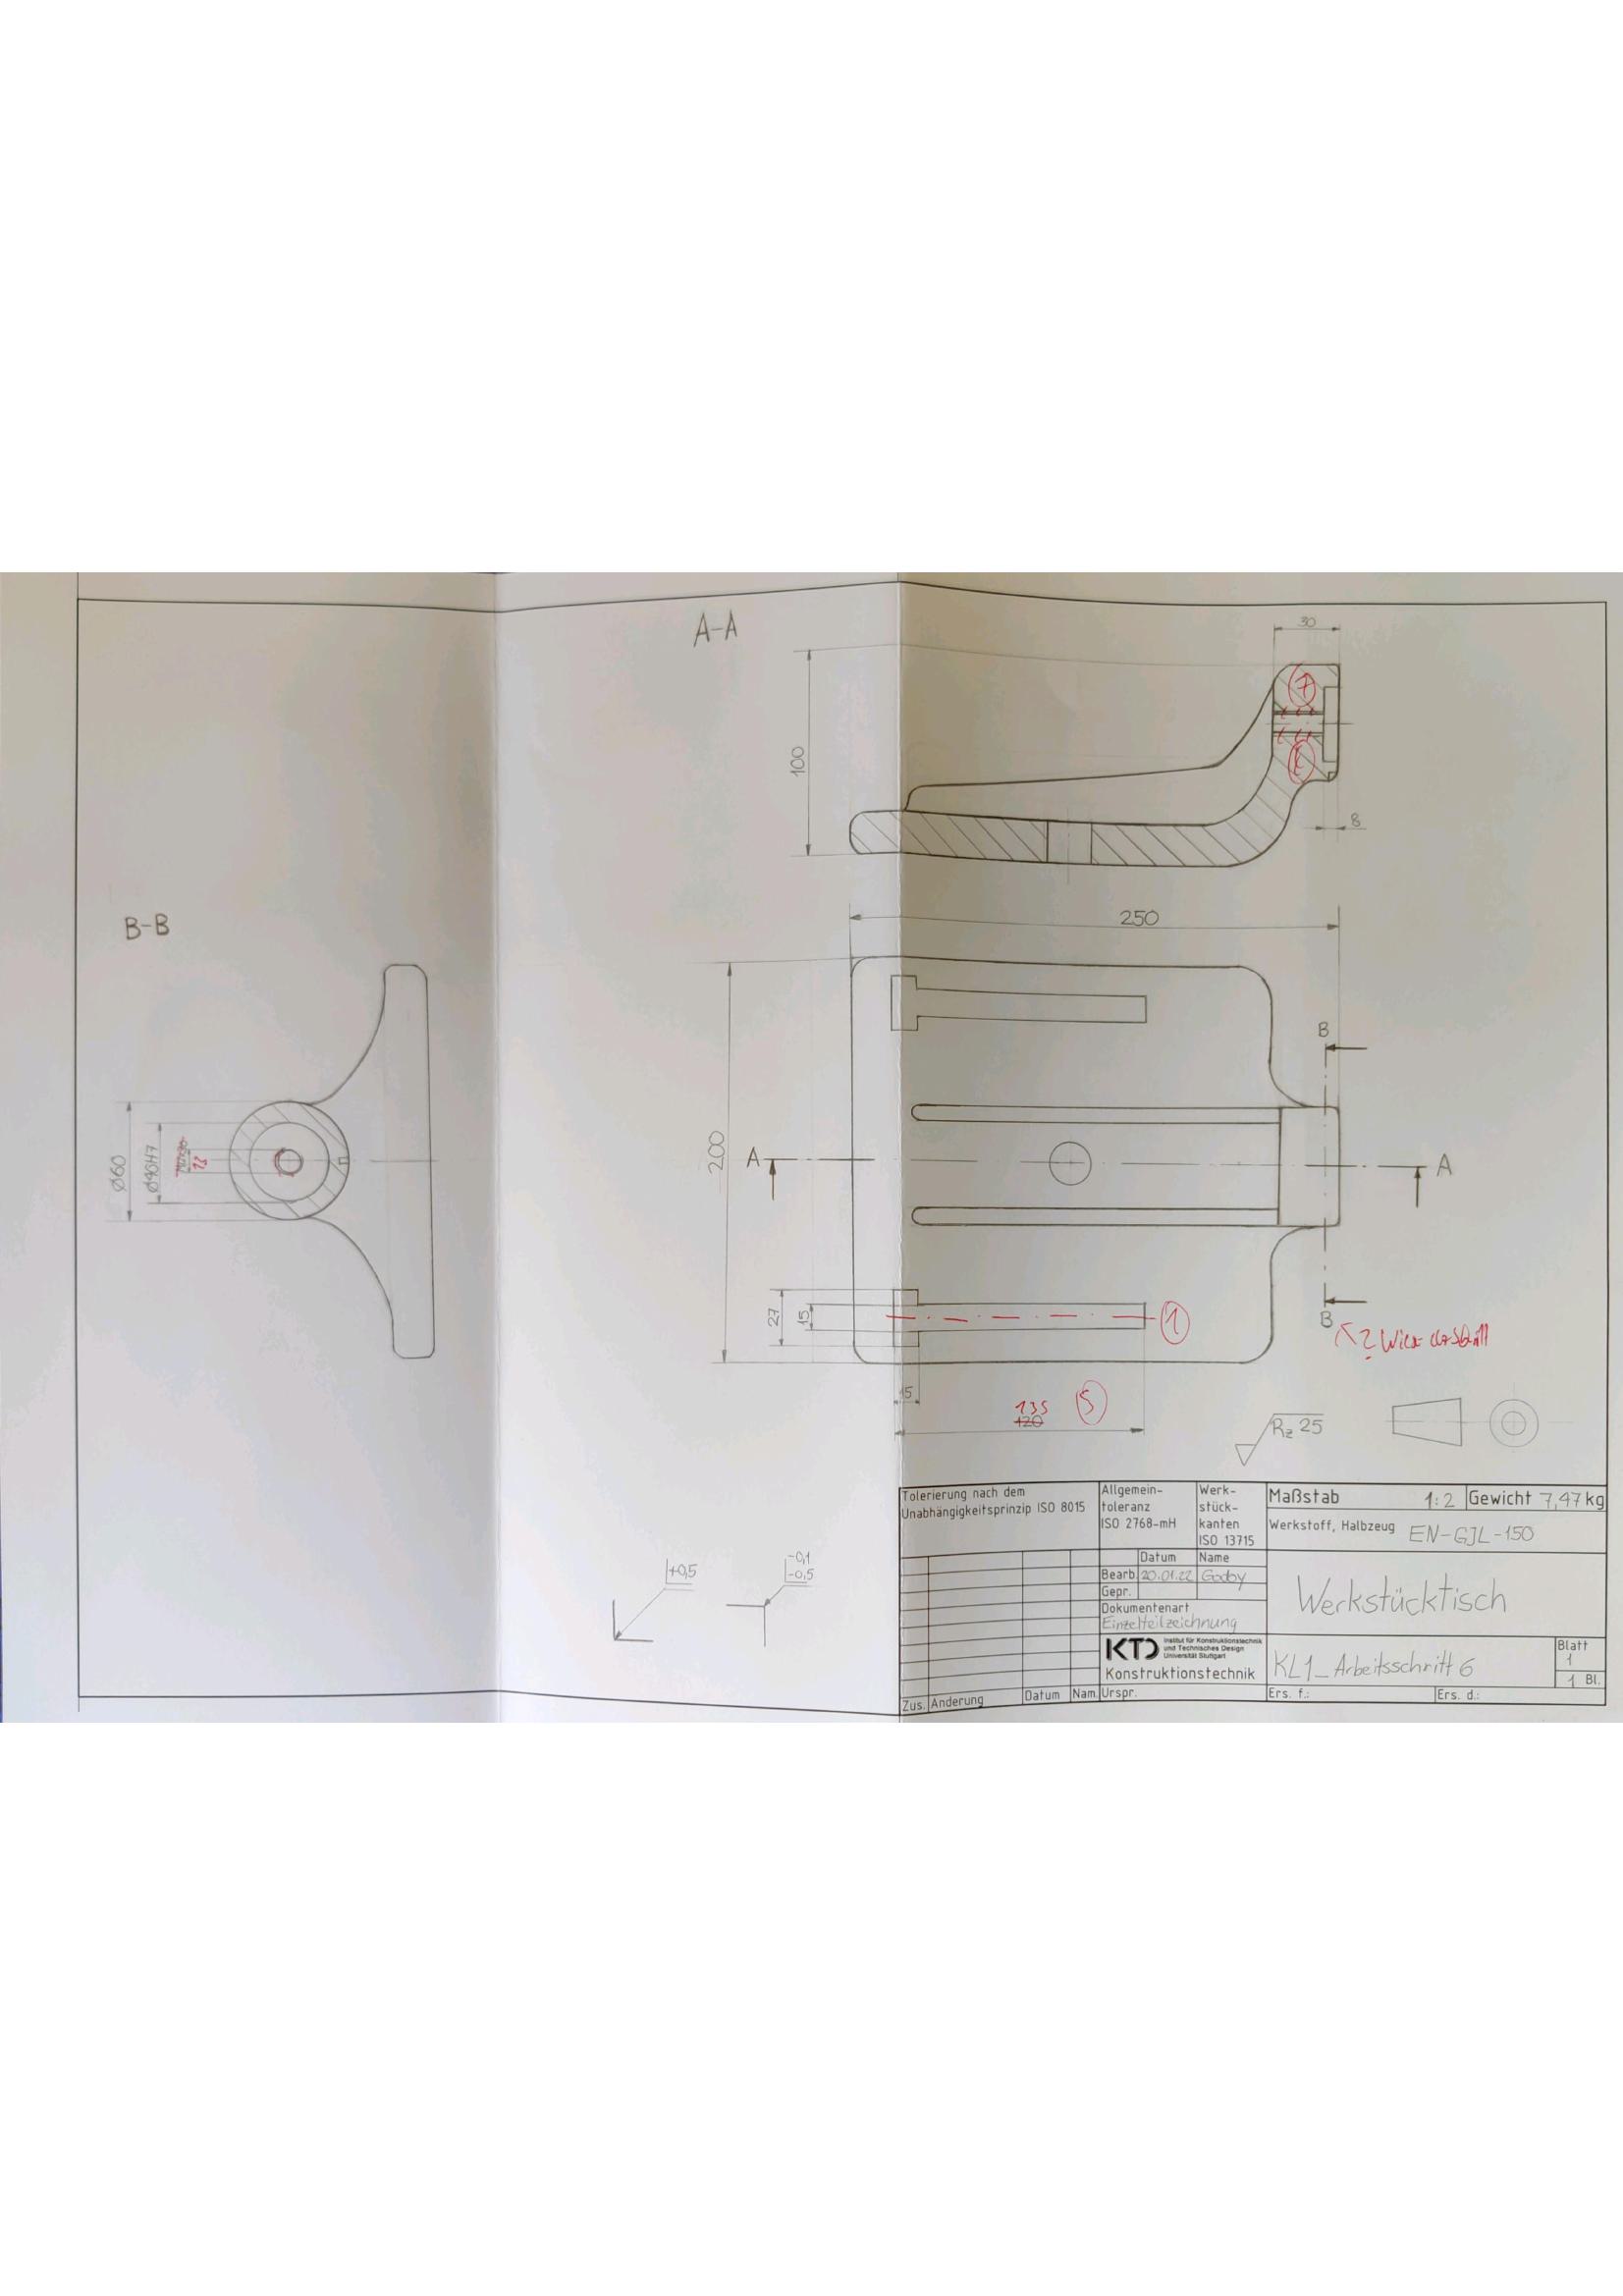 A-A
30
7
100
8
B-B
250
B
200
A
A
Ø60
Ø40H7
27
15
1
B
?
15
135
120
5
Rz 25
Tolerierung nach dem
Unabhängigkeitsprinzip ISO 8015
Allgemein-
toleranz
ISO 2768-mH
Werk-
stück-
kanten
ISO 13715
Maßstab 1:2
Gewicht 7,47 kg
Werkstoff, Halbzeug EN-GJL-150
+0,5
-0,1
-0,5
Datum Name
Bearb. 20.01.22 Godby
Gepr.
Dokumentenart
Einzelteilzeichnung
Werkstücktisch
KTD Institut für Konstruktionstechnik
und Technisches Design
Universität Stuttgart
Konstruktionstechnik
KL1_Arbeitsschritt 6
Blatt
1
1 Bl.
Zus. Änderung Datum Nam. Urspr. Ers. f.: Ers. d.: